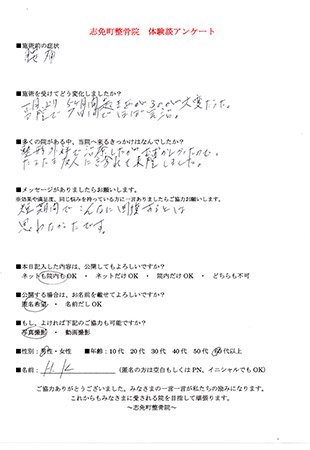 志免町整骨院　体験談アンケート
■施術前の症状
腰痛
■施術を受けてどう変化しましたか？
当院で
ほぼ完治。
■多くの院がある中、当院へ来るきっかけはなんでしたか？
整形外科で治療したが
たまたま友人に
来院しました。
■メッセージがありましたらお願いします。
※効果や満足度、同じ悩みを持っている方に一言ありましたらご協力お願いします。
短期間でこんなに回復するとは
思わなかったです。
■本日記入した内容は、公開してもよろしいですか？
ネットも院内もOK ・ ネットだけOK ・ 院内だけOK ・ どちらも不可
■公開する場合は、お名前を載せてよろしいですか？
匿名希望 ・ 名前だしOK
■もし、よければ下記のご協力も可能ですか？
写真撮影 ・ 動画撮影
■性別：男性・女性　■年齢：10代 20代 30代 40代 50代 60代以上
■名前： H.K （匿名の方は空白もしくはPN、イニシャルでもOK）
ご協力ありがとうございました。みなさまの一言一言が私たちの励みになります。
これからもみなさまに愛される院を目指して頑張ります。
～志免町整骨院～